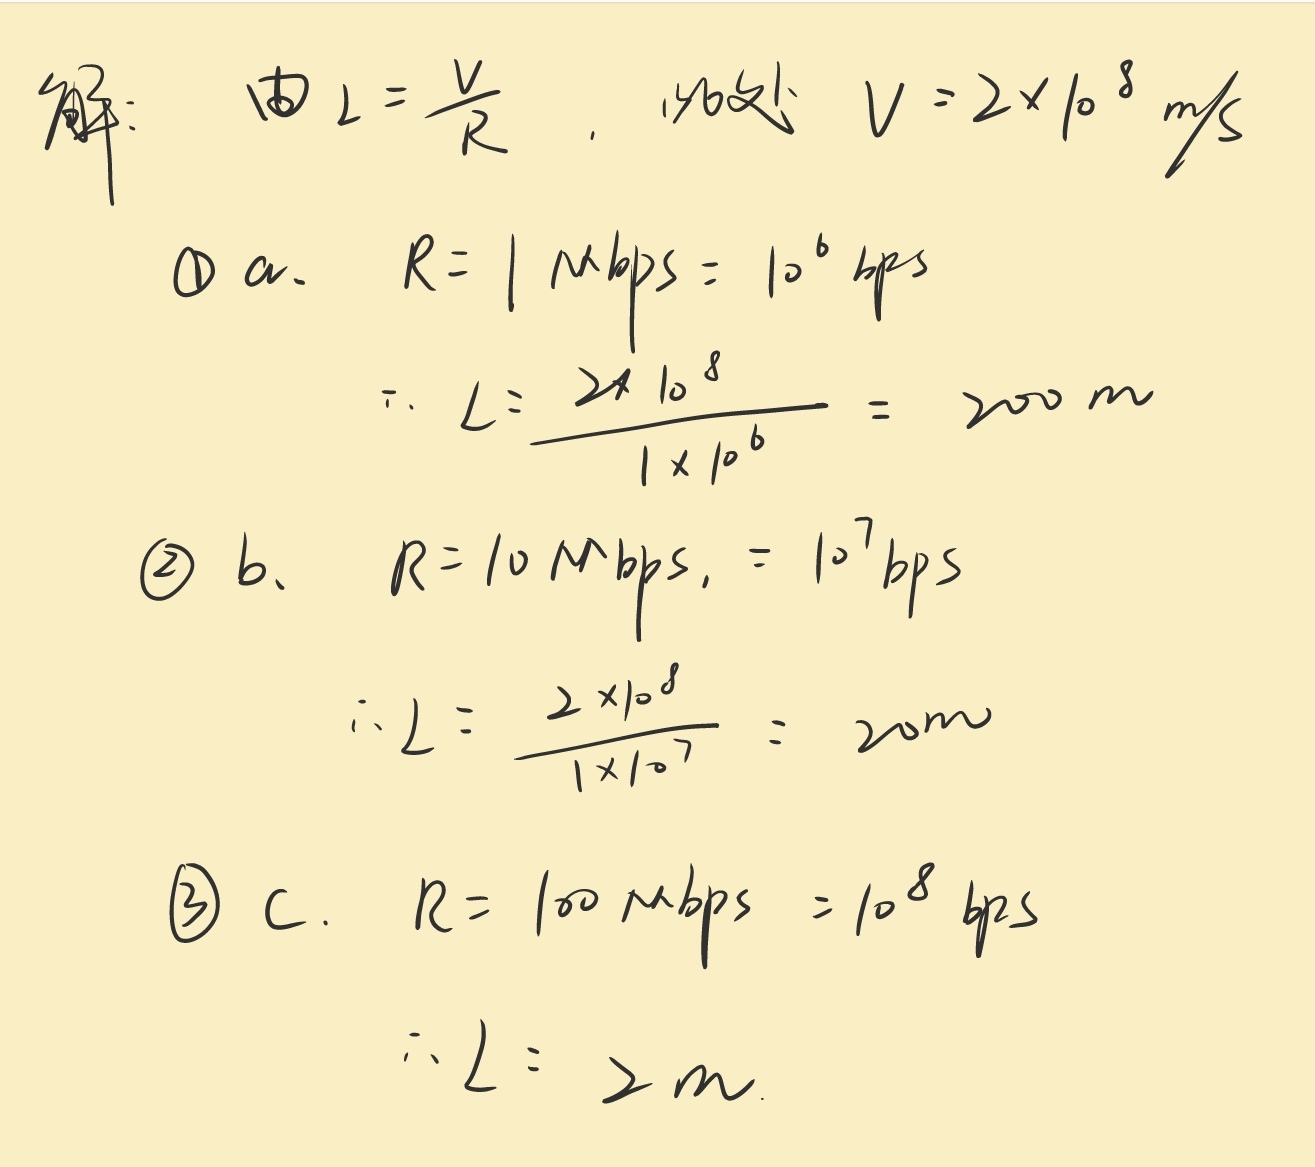 解: 由 L = V/R , 此处 V = 2×10⁸ m/s
① a. R = 1 Mbps = 10⁶ bps
∴ L = 2×10⁸ / 1×10⁶ = 200 m
② b. R = 10 Mbps, = 10⁷ bps
∴ L = 2×10⁸ / 1×10⁷ = 20m
③ c. R = 100 Mbps = 10⁸ bps
∴ L = 2 m.